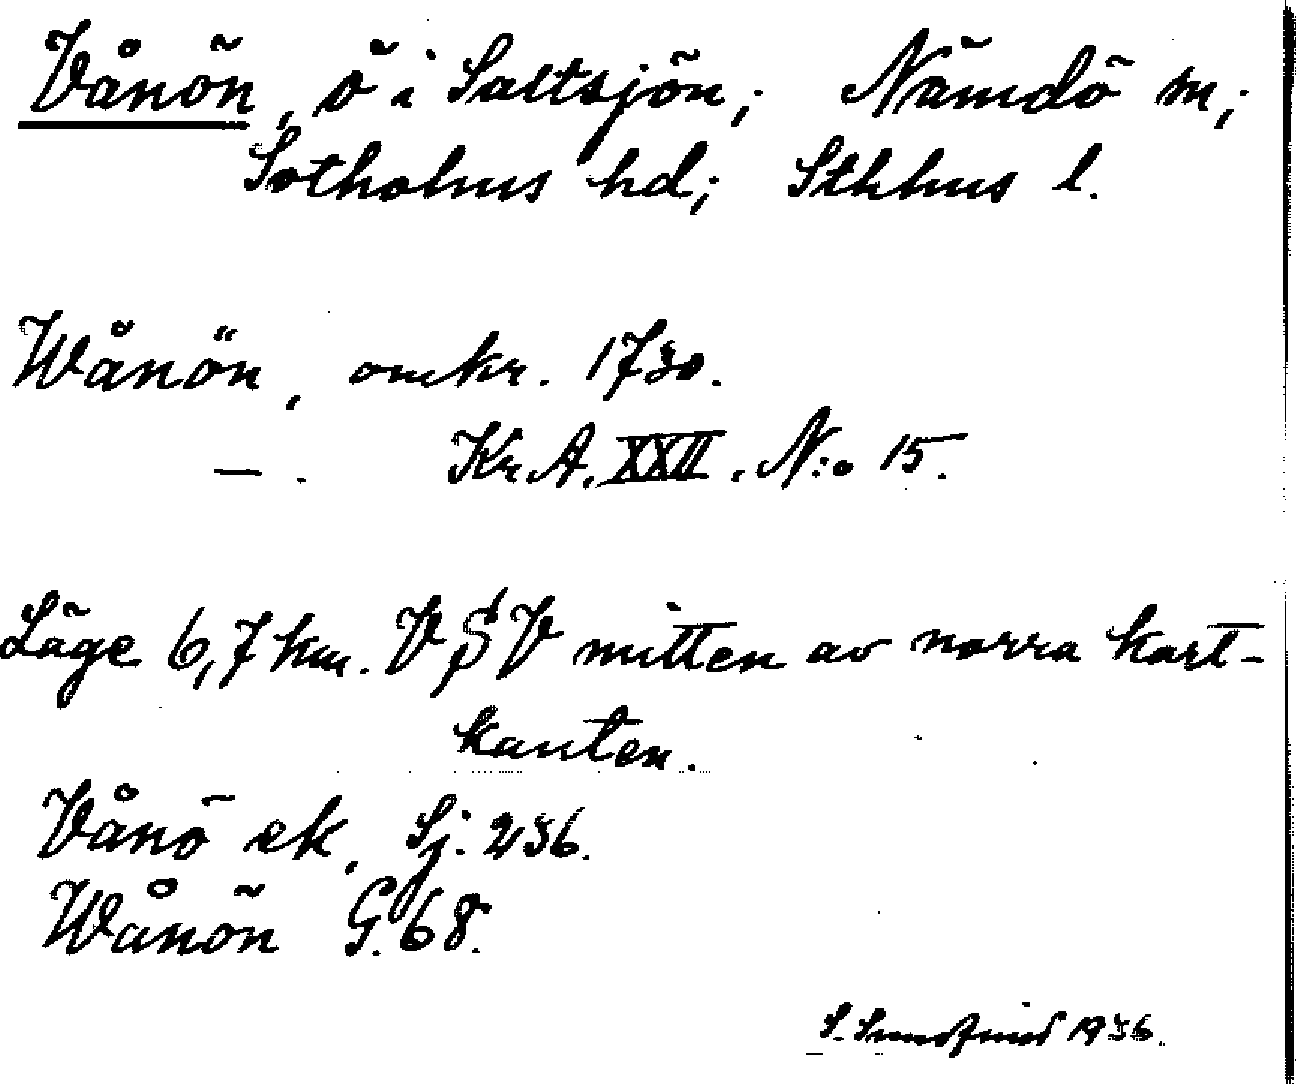 Vånön, ö i Saltsjön; Nämdö m;
Sotholms hd; Sthlms l.
Wånön, omkr. 1730.
— . Kr. A. XXII. N:o 15.
Läge 6,7 km. V S V mitten av norra kart-
kanten.
Vånö ek. Sj. 236.
Wånön G. 68.
S. 1936.